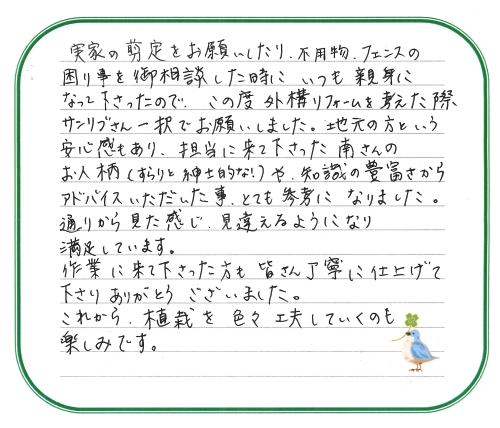 実家の剪定をお願いしたり、不用物、フェンスの
困り事を御相談した時に いつも 親身に
なって下さったので、この度 外構リフォームを考えた際、
サンリブさん一択でお願いしました。地元の方という
安心感もあり、担当に来て下さった 南さんの
お人柄(すらりと紳士的な!)や、知識の豊富さから
アドバイスいただいた事、とても参考に なりました。
通りから見た感じ、見違えるようになり
満足しています。
作業に来て下さった方も 皆さん丁寧に仕上げて
下さり ありがとう ございました。
これから、植栽を 色々 工夫していくのも
楽しみです。